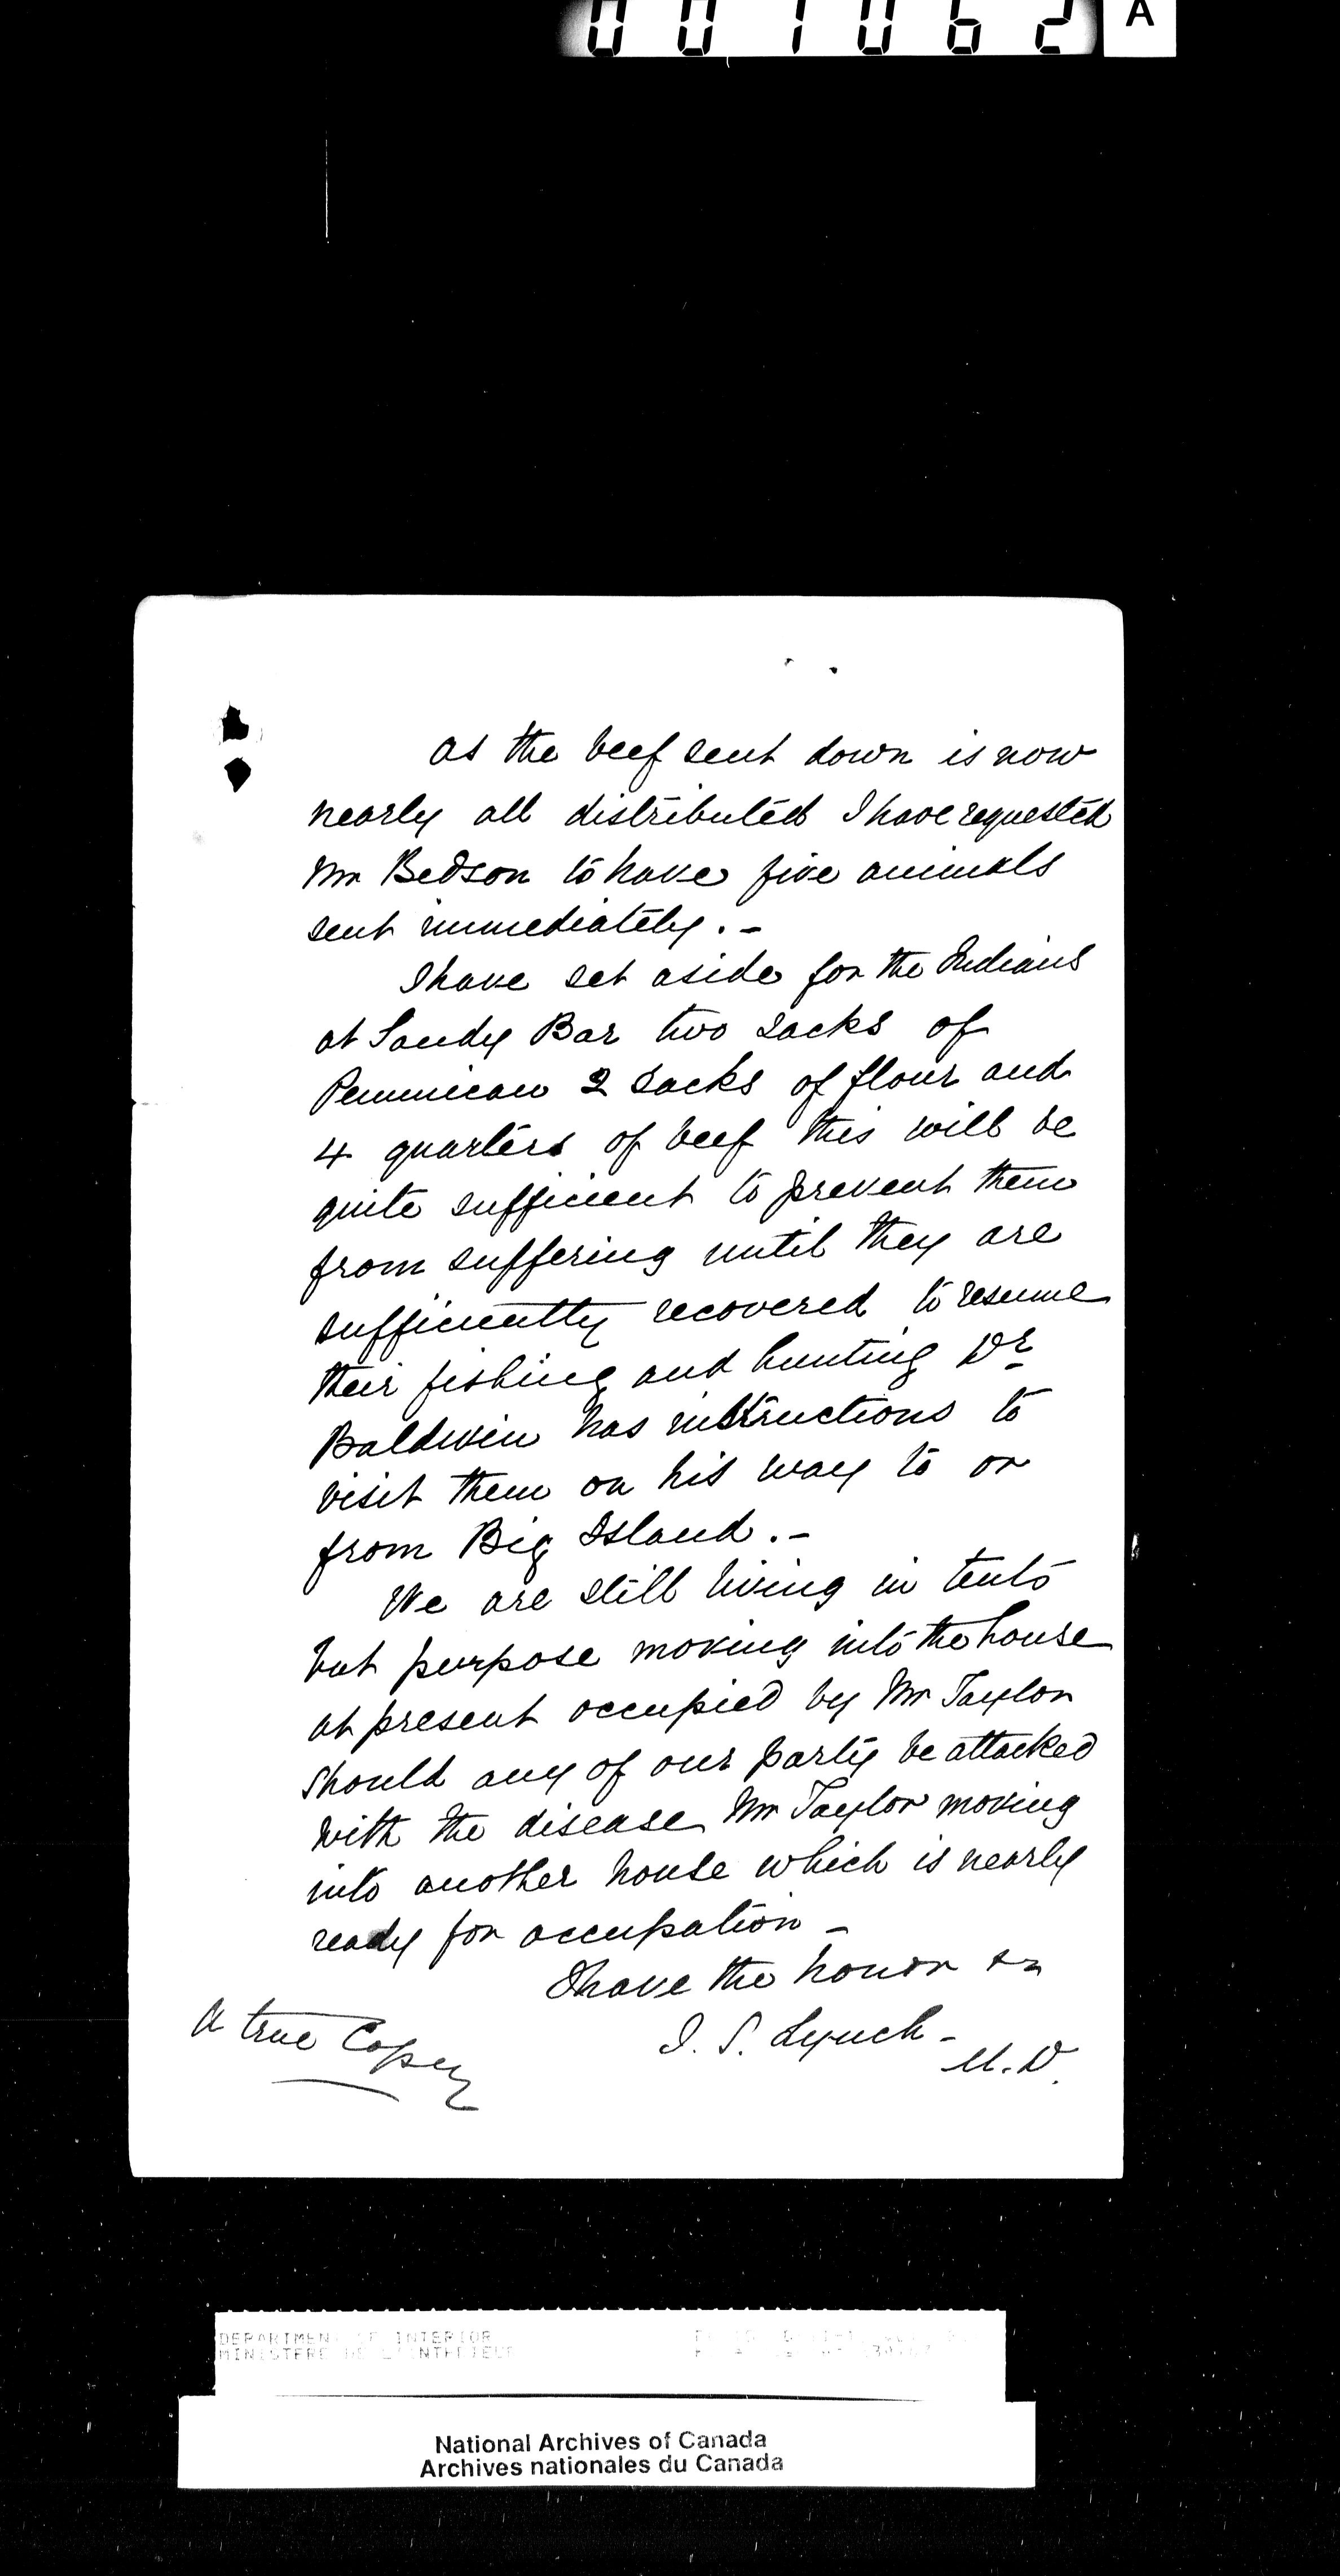 001062
A
As the beef sent down is now
nearly all distributed I have requested
Mr Bedson to have five animals
sent immediately. -
I have set aside for the Indians
at Sandy Bar two sacks of
Pemmican 2 sacks of flour and
4 quarters of beef this will be
quite sufficient to prevent them
from suffering until they are
sufficiently recovered to resume
their fishing and hunting Dr
Baldwin has instructions to
visit them on his way to or
from Big Island. -
We are still living in tents
but purpose moving into the house
at present occupied by Mr Taylor
should any of our party be attacked
with the disease Mr Taylor moving
into another house which is nearly
ready for occupation -
I have the honor &c
J. S. Lynch -
M.D.
A true Copy
DEPARTMENT OF INTERIOR
MINISTERE DE L'INTERIEUR
National Archives of Canada
Archives nationales du Canada